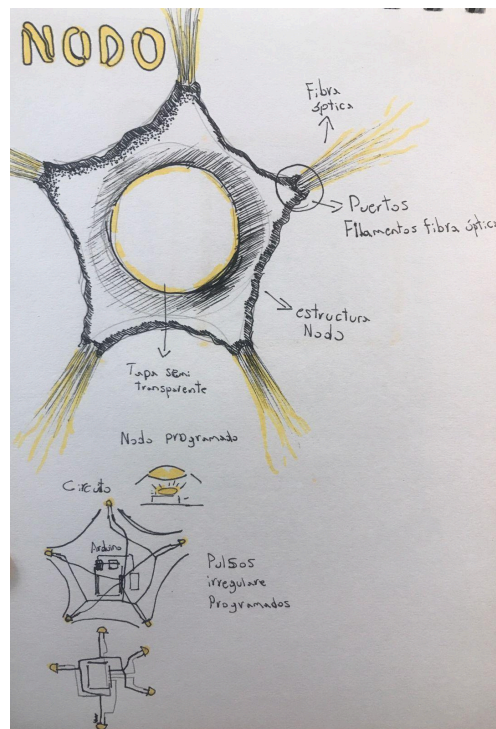 NODO
Fibra
óptica
Puertos
Filamentos fibra óptica
estructura
Nodo
Tapa semi
transparente
Nodo programado
Circuito
Arduino
Pulsos
irregulare
Programados